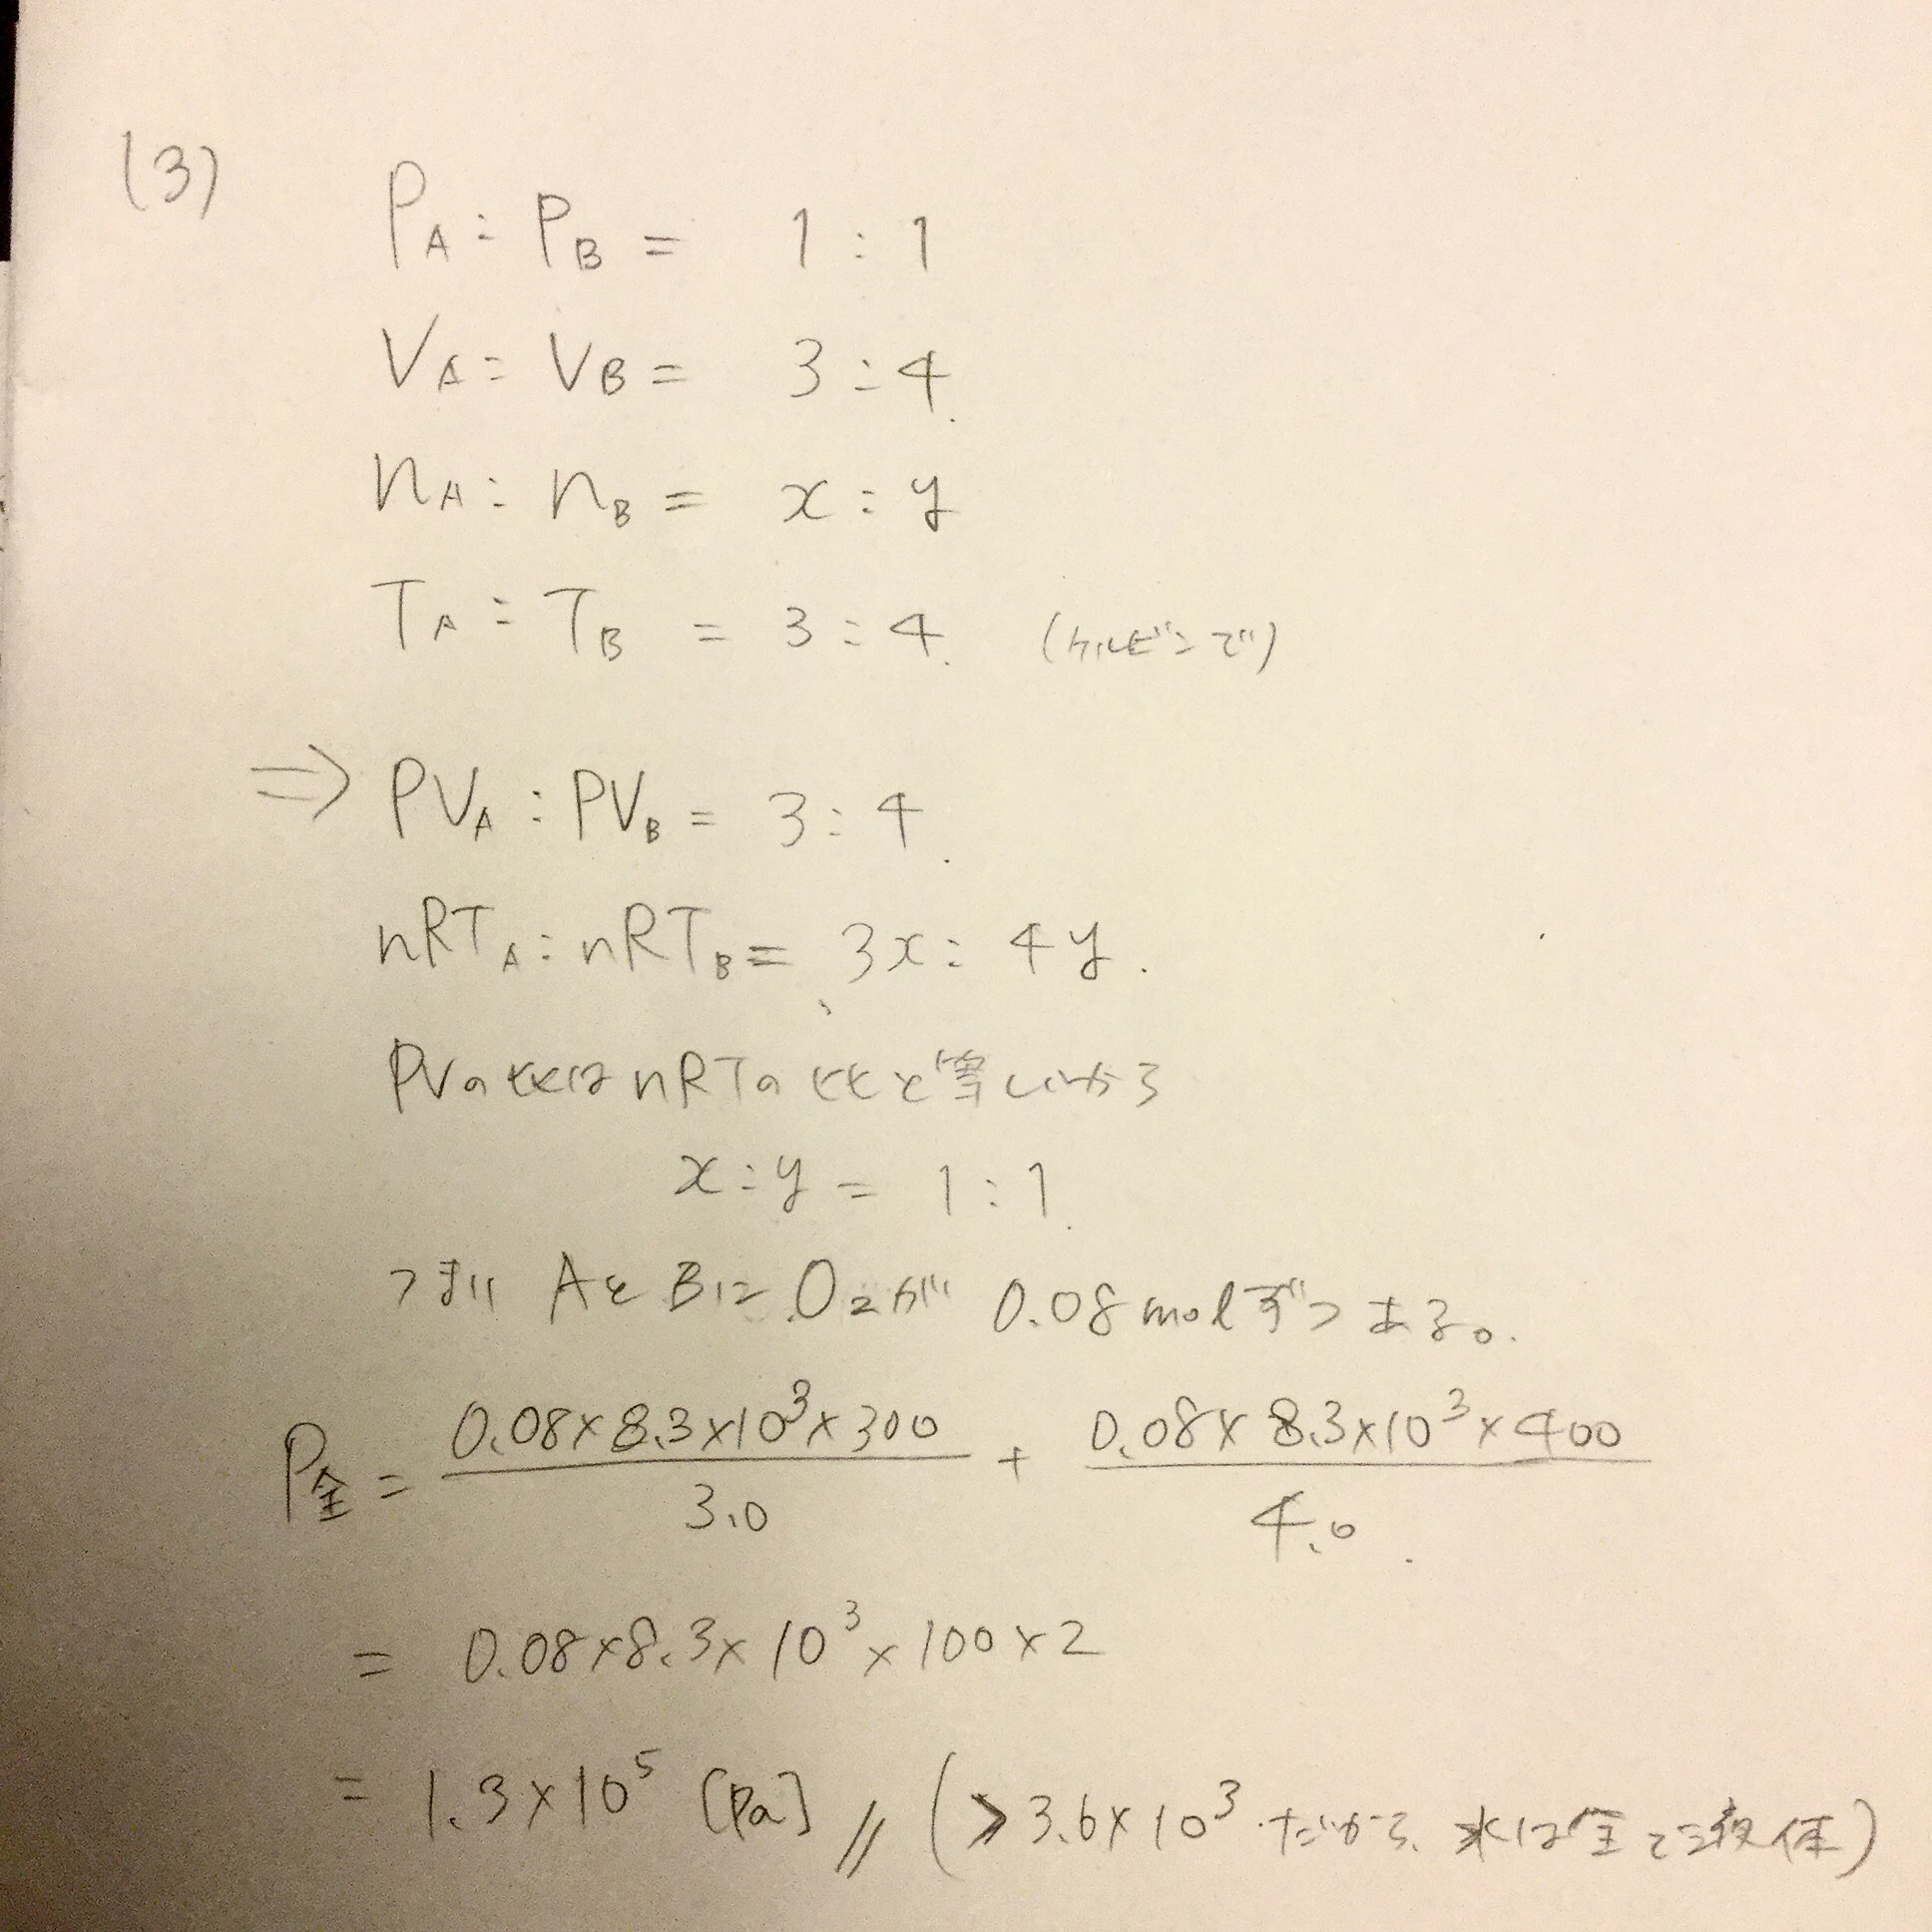 (3)
PA : PB = 1 : 1
VA : VB = 3 : 4
nA : nB = x : y
TA : TB = 3 : 4 (ケルビンで)
⇒ PVA : PVB = 3 : 4
nRTA : nRTB = 3x : 4y
PVの比はnRTの比と等しいから
x : y = 1 : 1
つまり AとBに O2が 0.08molずつある。
P全 = 0.08×8.3×10³×300/3.0 + 0.08×8.3×10³×400/4.0
= 0.08×8.3×10³×100×2
= 1.3×10⁵ [Pa] // (>3.6×10³だから、水は全て液体)